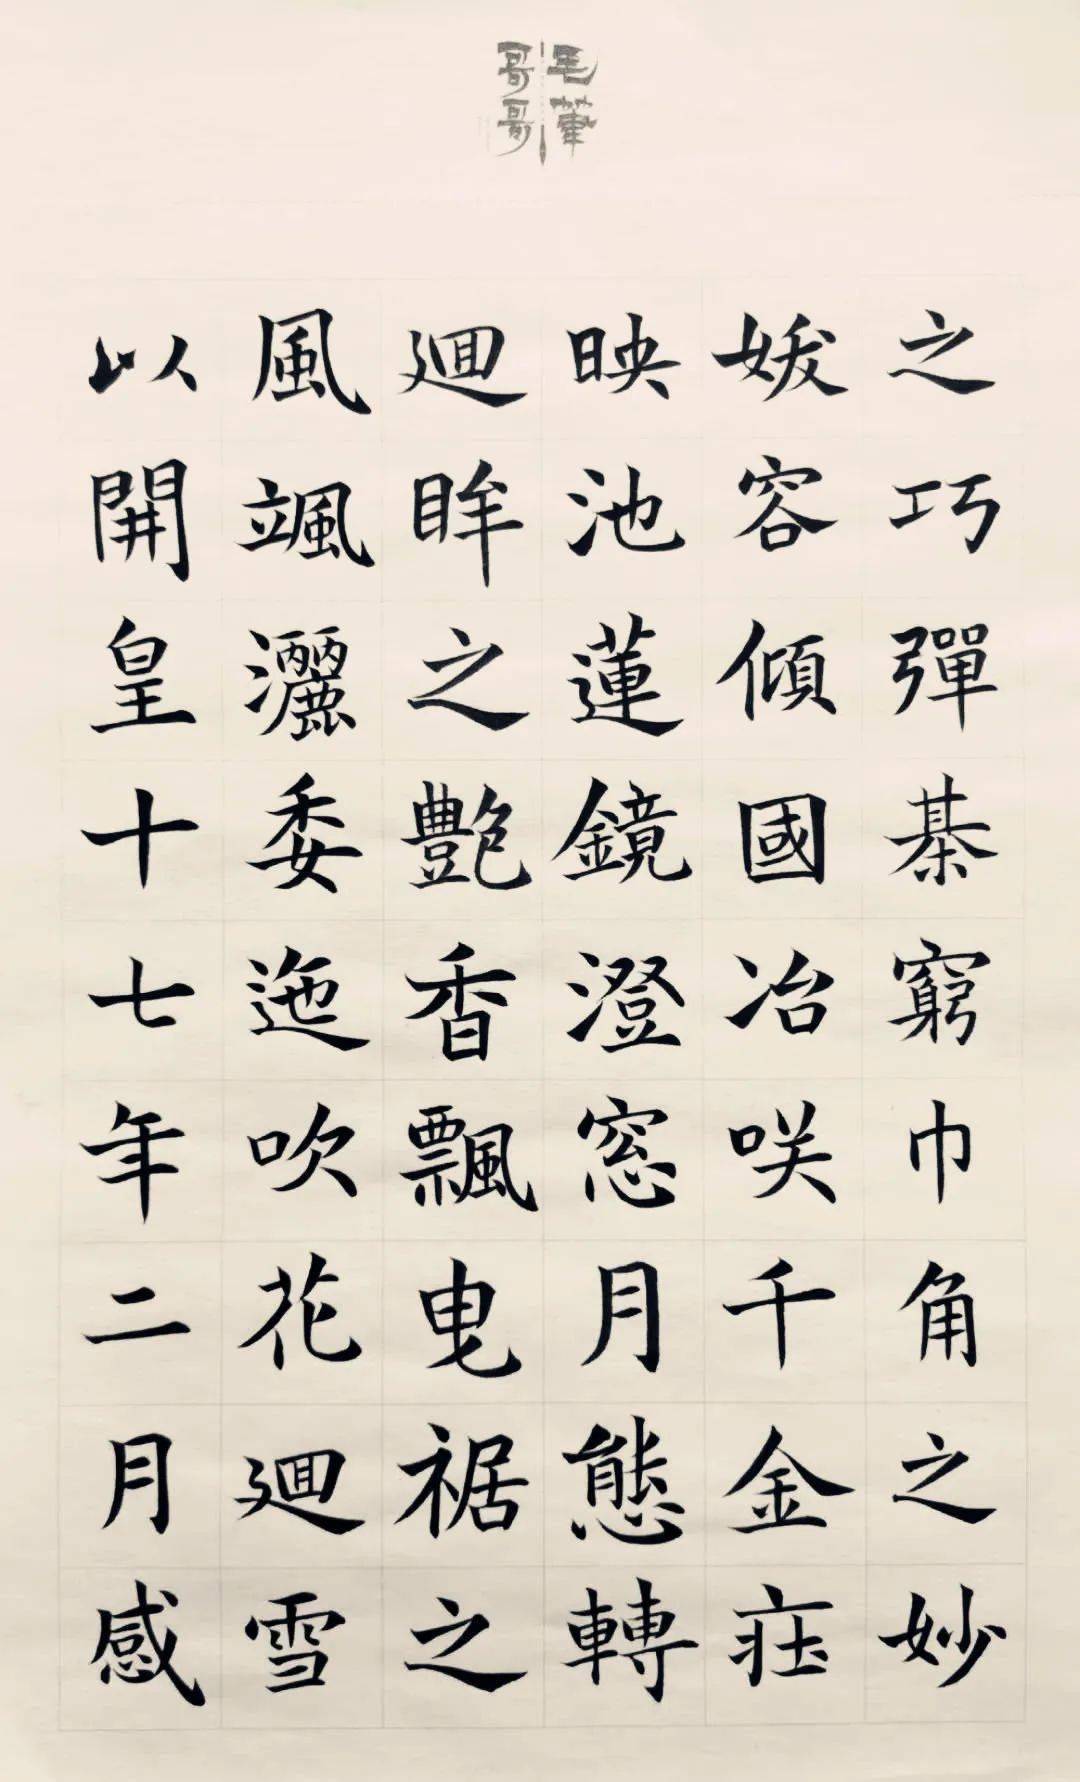 毛筆
哥哥
之巧彈棊窮巾角之妙
媛容傾國冶咲千金莊
映池蓮鏡澄窓月態轉
迴眸之艷香飄曳裾之
風颯灑委迤吹花迴雪
以開皇十七年二月感